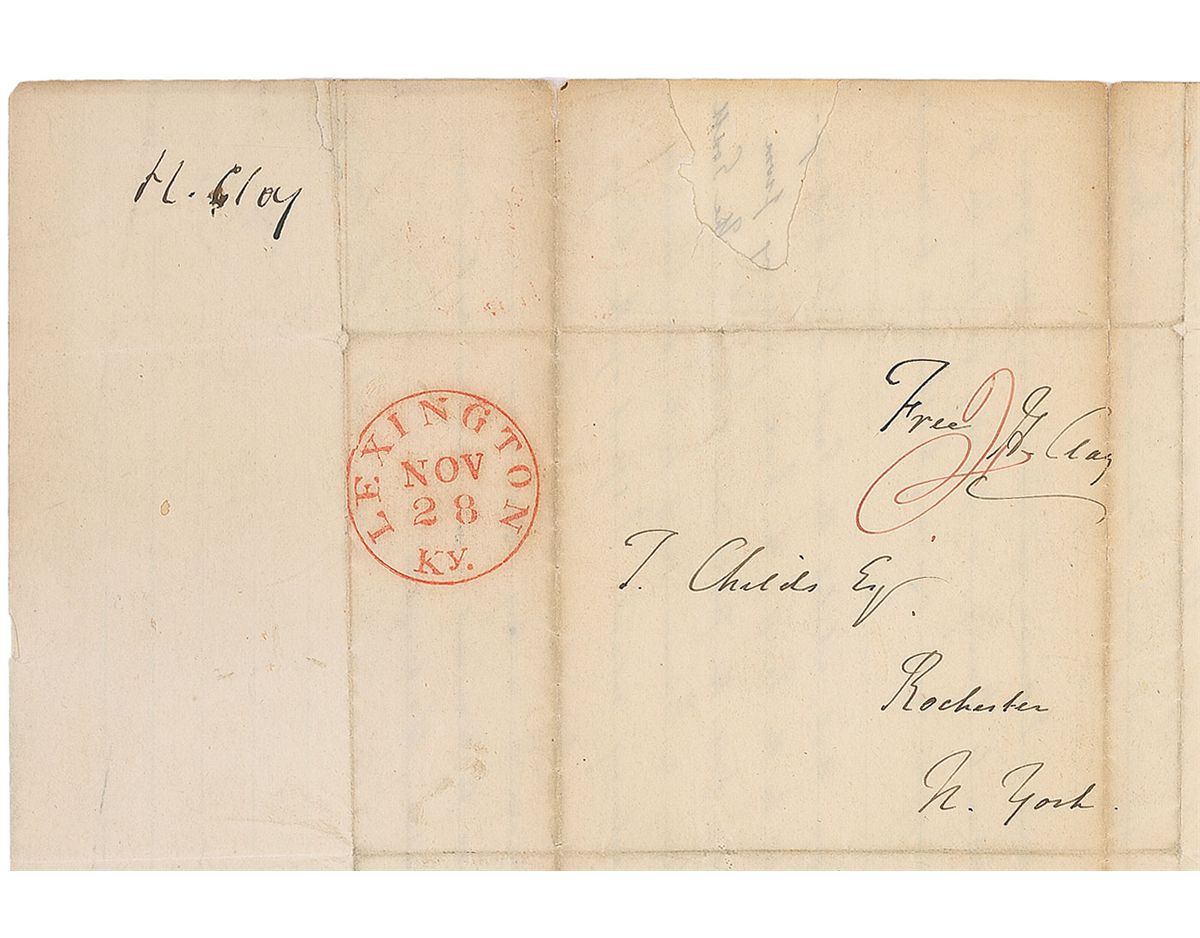 H. Clay
LEXINGTON
NOV
28
KY.
Free H Clay
T. Childs Esq.
Rochester
N. York.